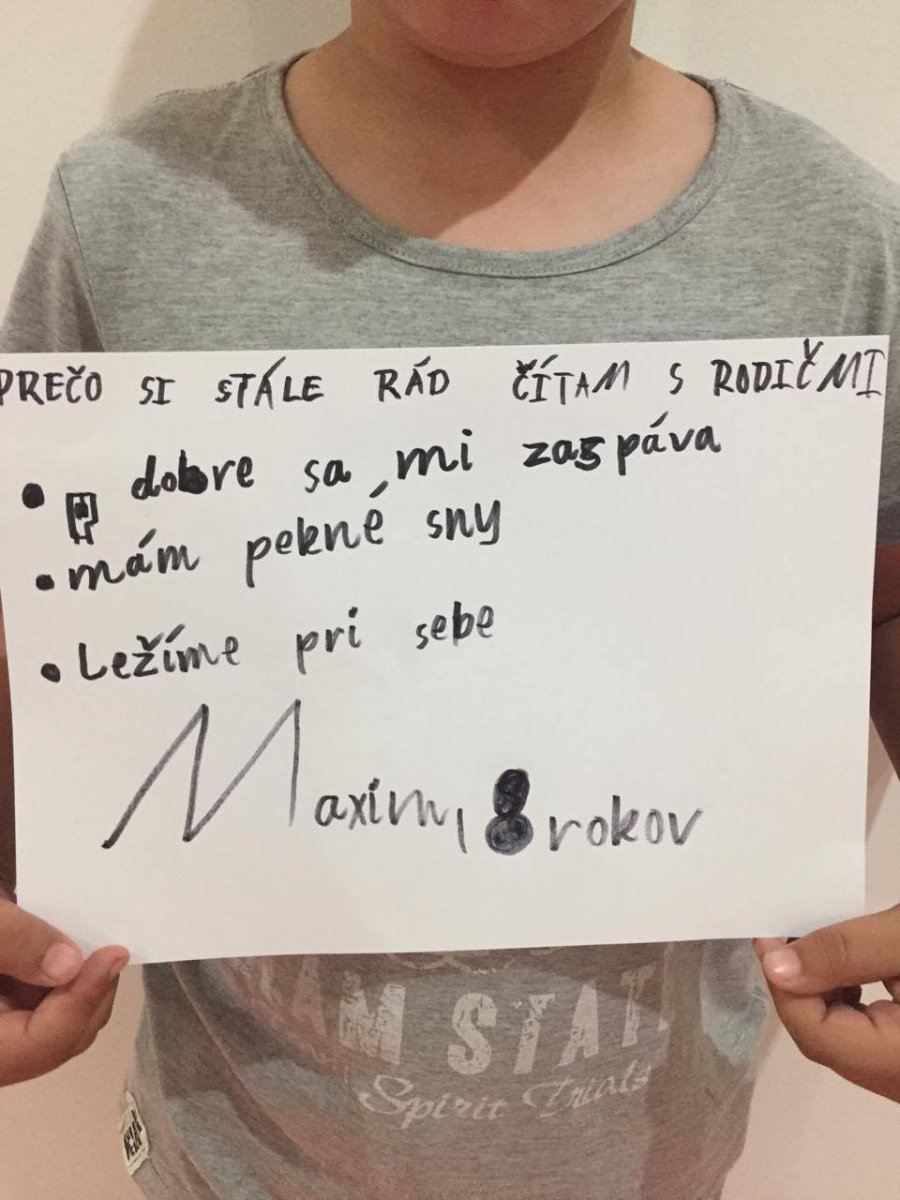 PREČO SI STÁLE RÁD ČÍTAM S RODIČMI
• dobre sa mi zaspáva
• mám pekné sny
• Ležíme pri sebe
Maxim, 8 rokov
AM STAT
Spirit Trials